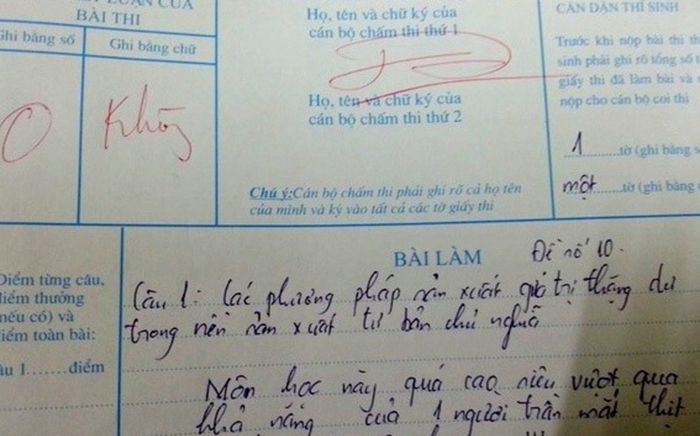 LUẬN CỦA
BÀI THI
Ghi bằng số
Ghi bằng chữ
0
Không
Họ, tên và chữ ký của
cán bộ chấm thi thứ 1
Họ, tên và chữ ký của
cán bộ chấm thi thứ 2
Chú ý: Cán bộ chấm thi phải ghi rõ cả họ tên
của mình và ký vào tất cả các tờ giấy thi
CĂN DẶN THÍ SINH
Trước khi nộp bài thi th
sinh phải ghi rõ tổng số t
giấy thi đã làm bài và
nộp cho cán bộ coi thi
1 ......tờ (ghi bằng s
một ......tờ (ghi bằng
Điểm từng câu,
điểm thưởng
(nếu có) và
điểm toàn bài:
âu 1.......điểm
BÀI LÀM
Đề số 10.
Câu 1: Các phương pháp sản xuất giá trị thặng dư
trong nền sản xuất tư bản chủ nghĩa
Môn học này quá cao siêu vượt qua
khả năng của 1 người trần mắt thịt